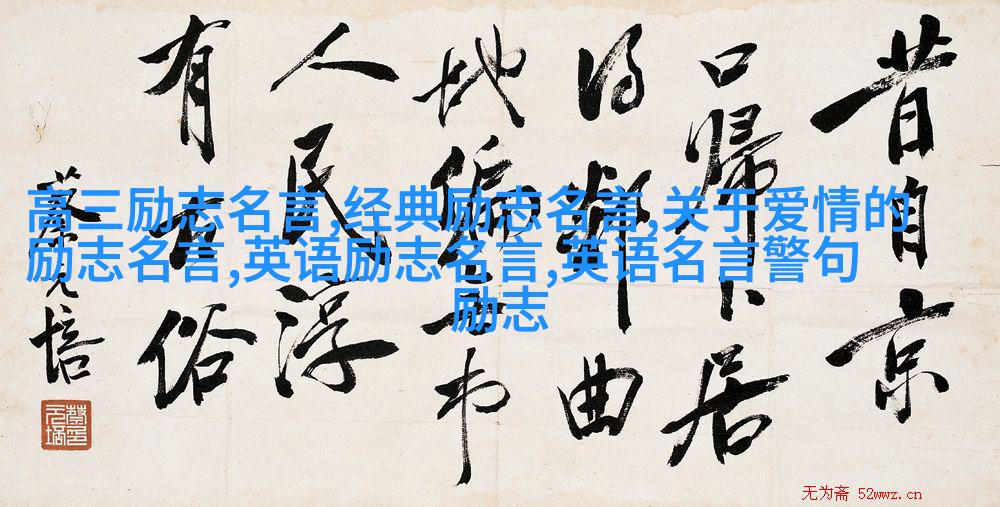 昔自京
口歸卜居
得鄰曲
地偏無市
人民淳
有古俗
蔡元培
高三励志名言,经典励志名言,关于爱情的
励志名言,英语励志名言,英语名言警句
励志
无为斋 52wwz.cn